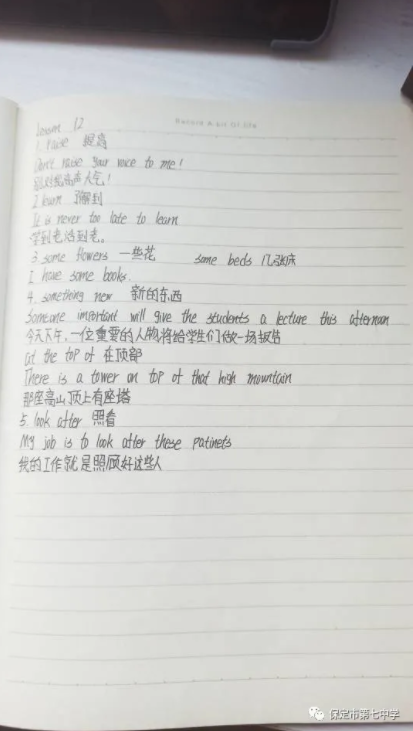 Record A Bit Of life
Lesson 12
1. raise 提高
Don't raise your voice to me!
别对我高声大气!
2. learn 了解到
It is never too late to learn
学到老活到老。
3. some flowers 一些花 some beds 几张床
I have some books.
4. something new 新的东西
Someone important will give the students a lecture this afternoon
今天下午,一位重要的人物将给学生们做一场报告
at the top of 在顶部
There is a tower on top of that high mountain
那座高山顶上有座塔
5. look after 照看
My job is to look after these patinets
我的工作就是照顾好这些人
保定市第七中学